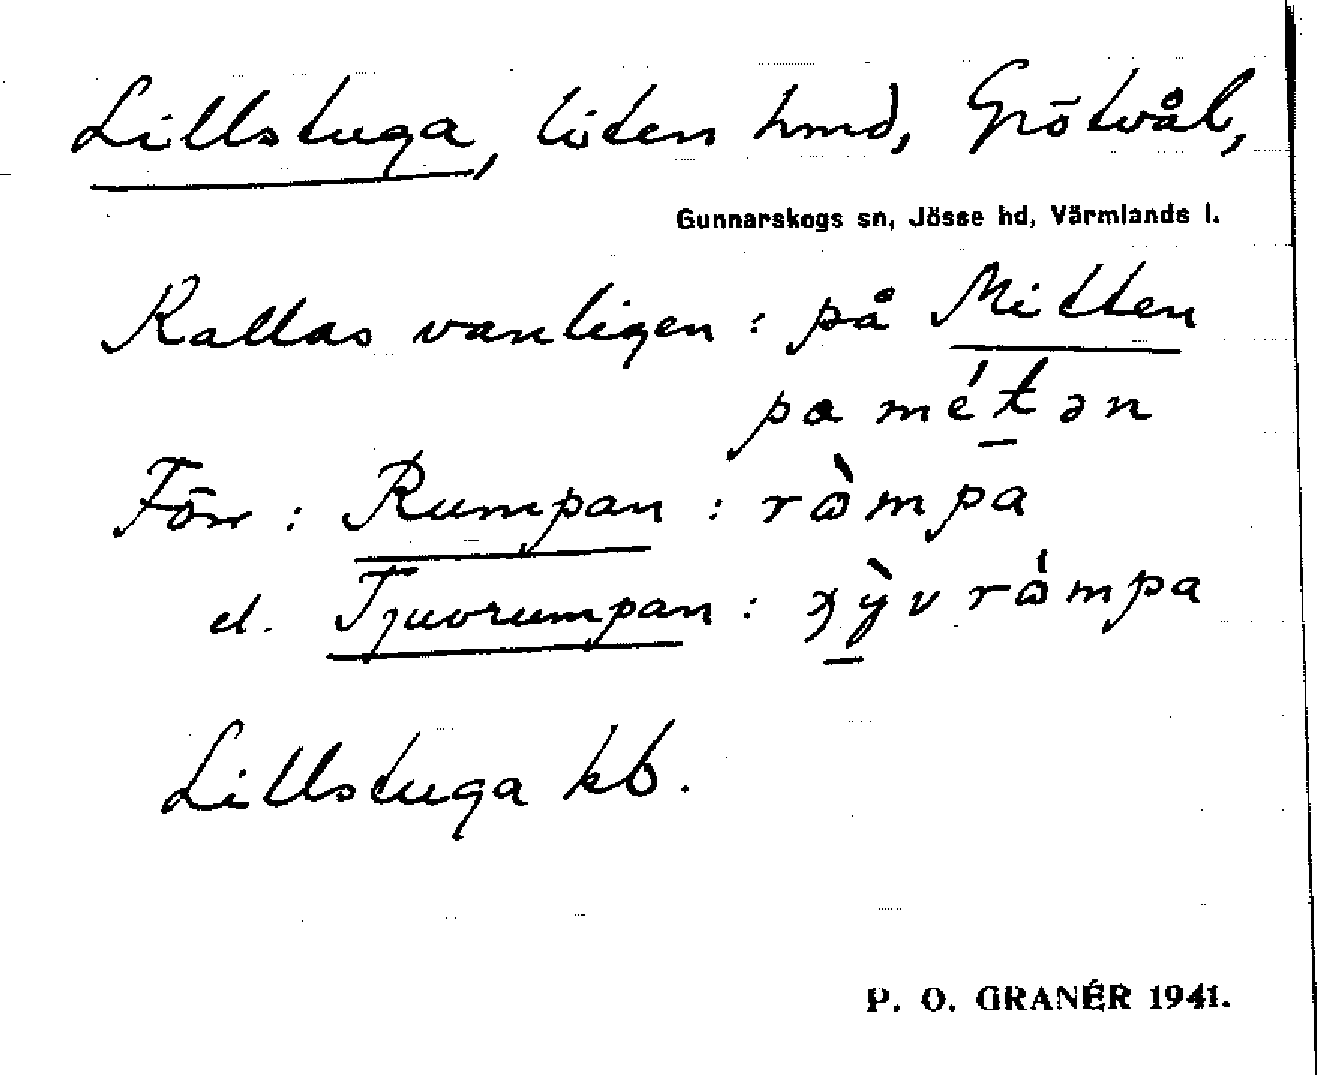 Lillstuga, liten hmd, Grötvål,
Gunnarskogs sn, Jösse hd, Värmlands l.
Kallas vanligen : på Mitten
pa métən
Förr : Rumpan : ròmpa
el. Tjuvrumpan : 
Lillstuga kb.
P. O. GRANÉR 1941.